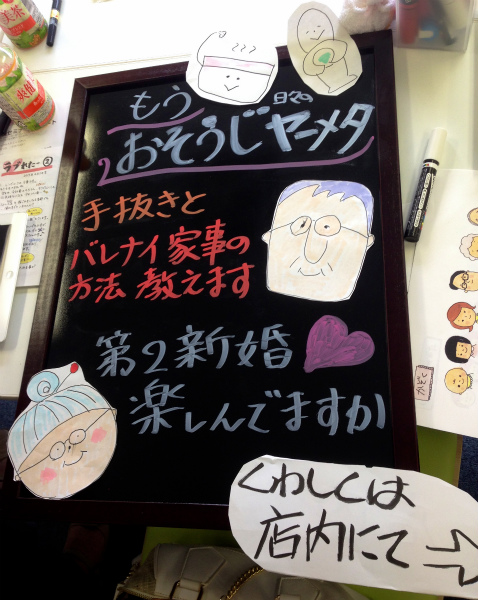 もう 日々の
おそうじヤーメタ
手抜きと
バレナイ家事の
方法 教えます
第2新婚
楽しんでますか
くわしくは
店内にて